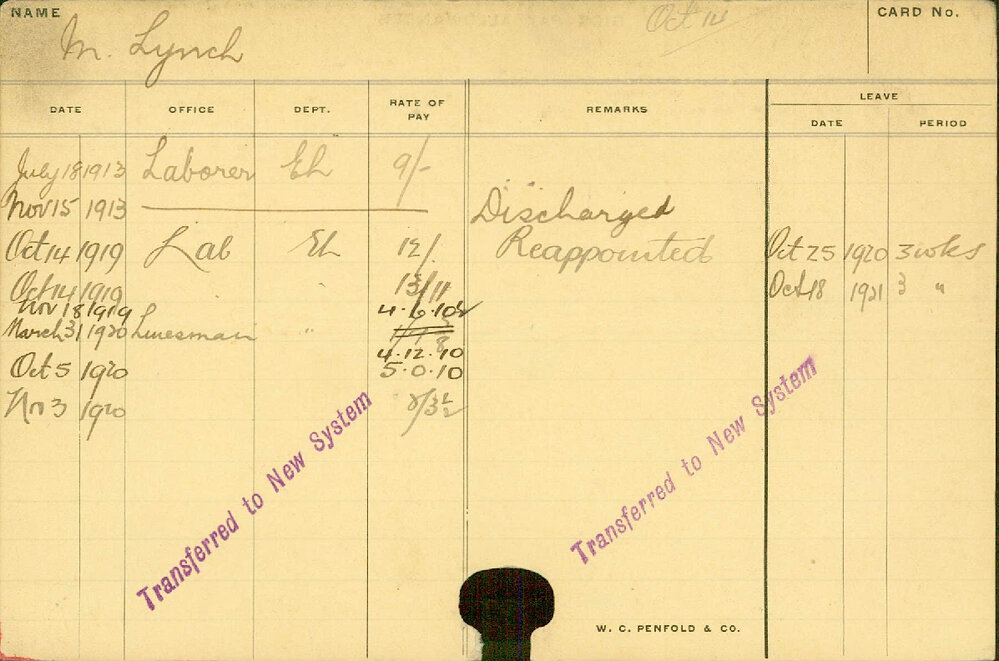 NAME
M. Lynch
Oct 14
CARD No.
DATE OFFICE DEPT. RATE OF PAY REMARKS LEAVE
DATE PERIOD
July 18 1913 Laborer EL 9/-
Nov 15 1913 Discharged
Oct 14 1919 Lab EL 12/. Reappointed Oct 25 1920 3 wks
Oct 14 1919 13/11 Oct 18 1921 3 "
Nov 18 1919 4.6.10½
March 31 1920 Linesman "
4.12.10
Oct 5 1920 5.0.10
Nov 3 1920
Transferred to New System
Transferred to New System
W. C. PENFOLD & CO.